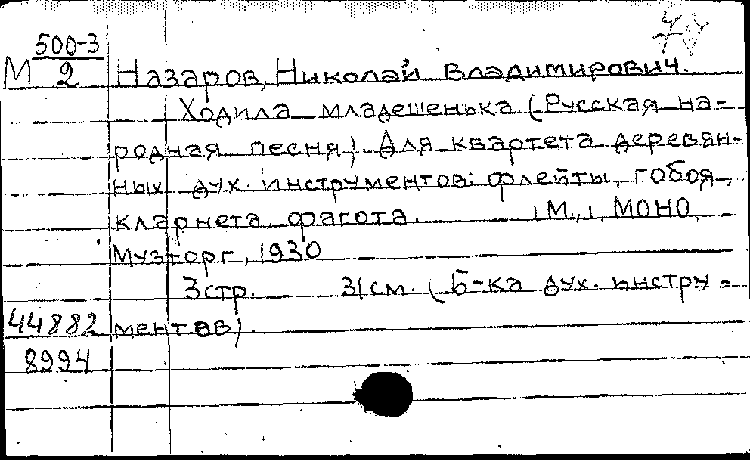 500-3
М 2 Назаров, Николай Владимирович.
Ходила младешенька (Русская на-
родная песня) Для квартета деревян-
ных дух. инструментов: флейты, гобоя,
кларнета, фагота. М., МОНО,
Музторг, 1930
3 стр. 31 см. (Б-ка дух. инстру-
44882 ментов).
8994